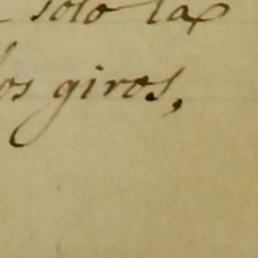 solo la
los giros,